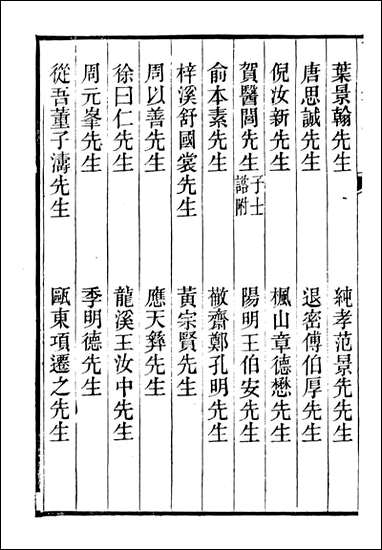 葉景翰先生 純孝范景先先生
唐思誠先生 退密傅伯厚先生
倪汝新先生 楓山章德懋先生
賀醫閭先生子士諮附 陽明王伯安先生
俞本素先生 敬齋鄭孔明先生
梓溪舒國裳先生 黃宗賢先生
周以善先生 應天彝先生
徐曰仁先生 龍溪王汝中先生
周元峯先生 季明德先生
從吾董子濤先生 甌東項遷之先生